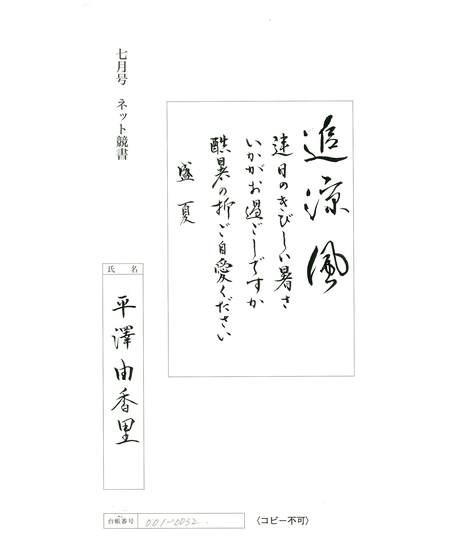 七月号 ネット競書
追涼風
連日のきびしい暑さ
いかがお過ごしですか
酷暑の折ご自愛ください
盛夏
氏名
平澤由香里
台帳番号 001-0032
(コピー不可)